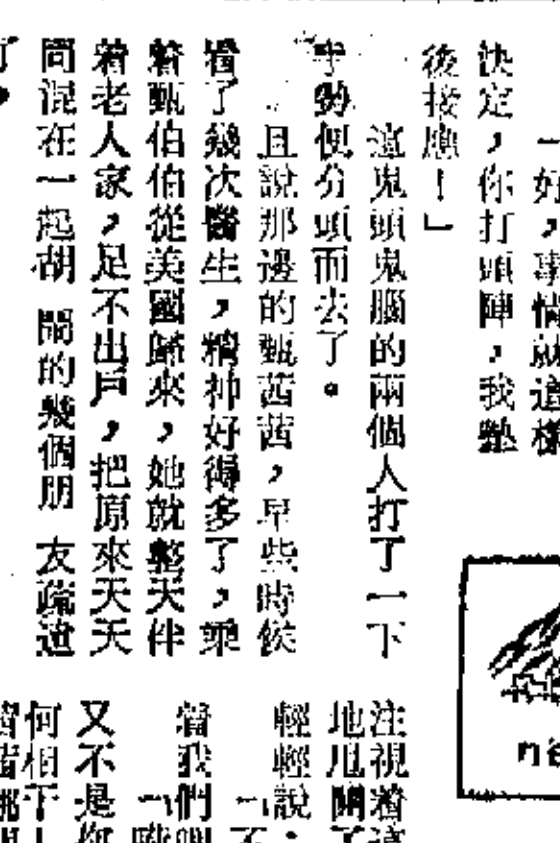 一好，事情就這樣
決定，你打頭陣，我墊
後接應！」
這鬼頭鬼腦的兩個人打了一下
手勢便分頭而去了。
且說那邊的甄茜茜，早些時候
看了幾次醫生，精神好得多了，乘
着甄伯伯從美國歸來，她就整天伴
着老人家，足不出戶，把原來天天
同混在一起胡鬧的幾個朋友疏遠
了。
注視着這
地甩開了
輕輕說：
「不
着我們
又不是你
何相下